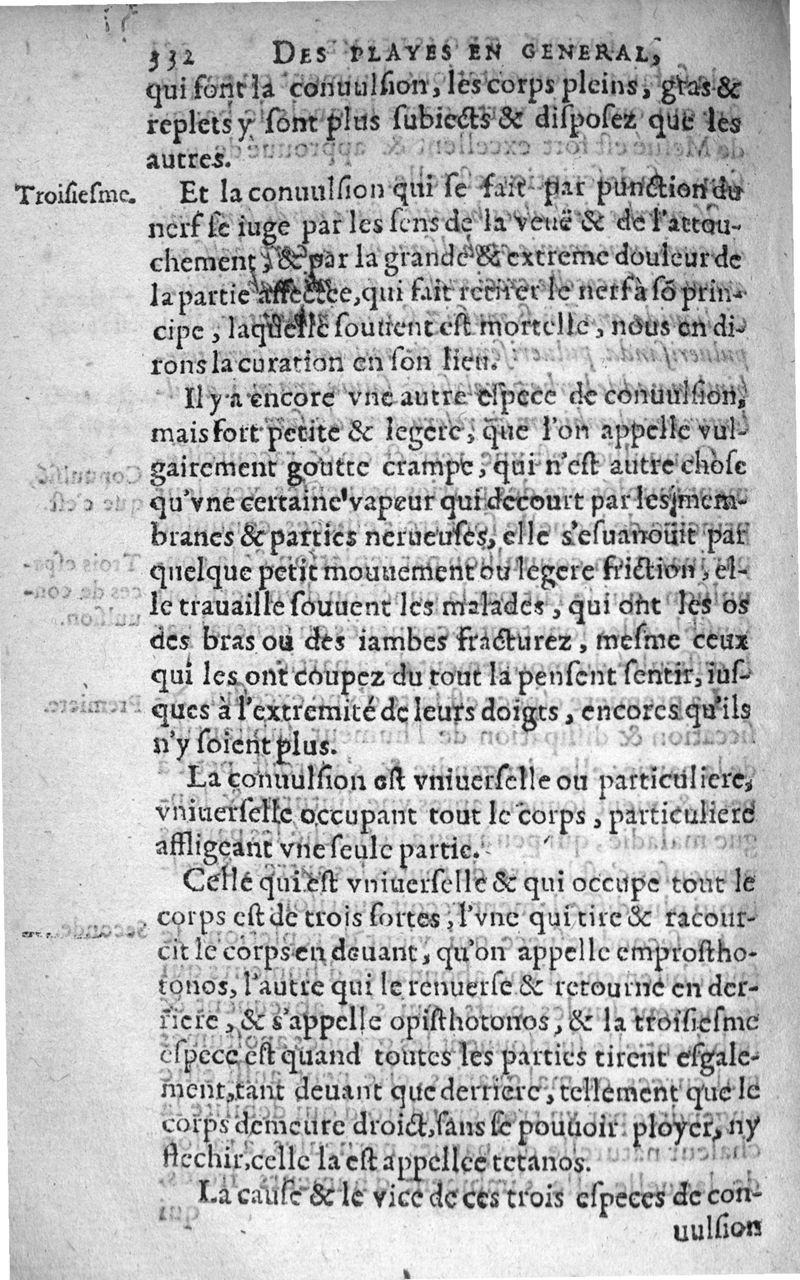 332 DES PLAYES EN GENERAL,
qui font la conuulsion, les corps pleins, gras &
replets y sont plus subiects & disposez que les
autres.
Troisiesme.
Et la conuulsion qui se fait par punction du
nerf se iuge par les sens de la veuë & de l'attou-
chement, & par la grande & extreme douleur de
la partie affectee, qui fait retirer le nerf à sō prin-
cipe, laquelle souuent est mortelle, nous en di-
rons la curation en son lieu.
Il y a encore vne autre espece de conuulsion,
mais fort petite & legere, que l'on appelle vul-
gairement goutte crampe, qui n'est autre chose
qu'vne certaine vapeur qui decourt par les mem-
branes & parties nerueuses, elle s'esuanouit par
quelque petit mouuement ou legere friction, el-
le trauaille souuent les malades, qui ont les os
des bras ou des iambes fracturez, mesme ceux
qui les ont coupez du tout la pensent sentir, ius-
ques à l'extremité de leurs doigts, encores qu'ils
n'y soient plus.
La conuulsion est vniuerselle ou particuliere,
vniuerselle occupant tout le corps, particuliere
affligeant vne seule partie.
Celle qui est vniuerselle & qui occupe tout le
corps est de trois sortes, l'vne qui tire & racour-
cit le corps en deuant, qu'on appelle emprostho-
tonos, l'autre qui le renuerse & retourne en der-
riere, & s'appelle opisthotonos, & la troisiesme
espece est quand toutes les parties tirent esgale-
ment, tant deuant que derriere, tellement que le
corps demeure droict, sans se pouuoir ployer, ny
flechir, celle la est appellee tetanos.
La cause & le vice de ces trois especes de con-
uulsion